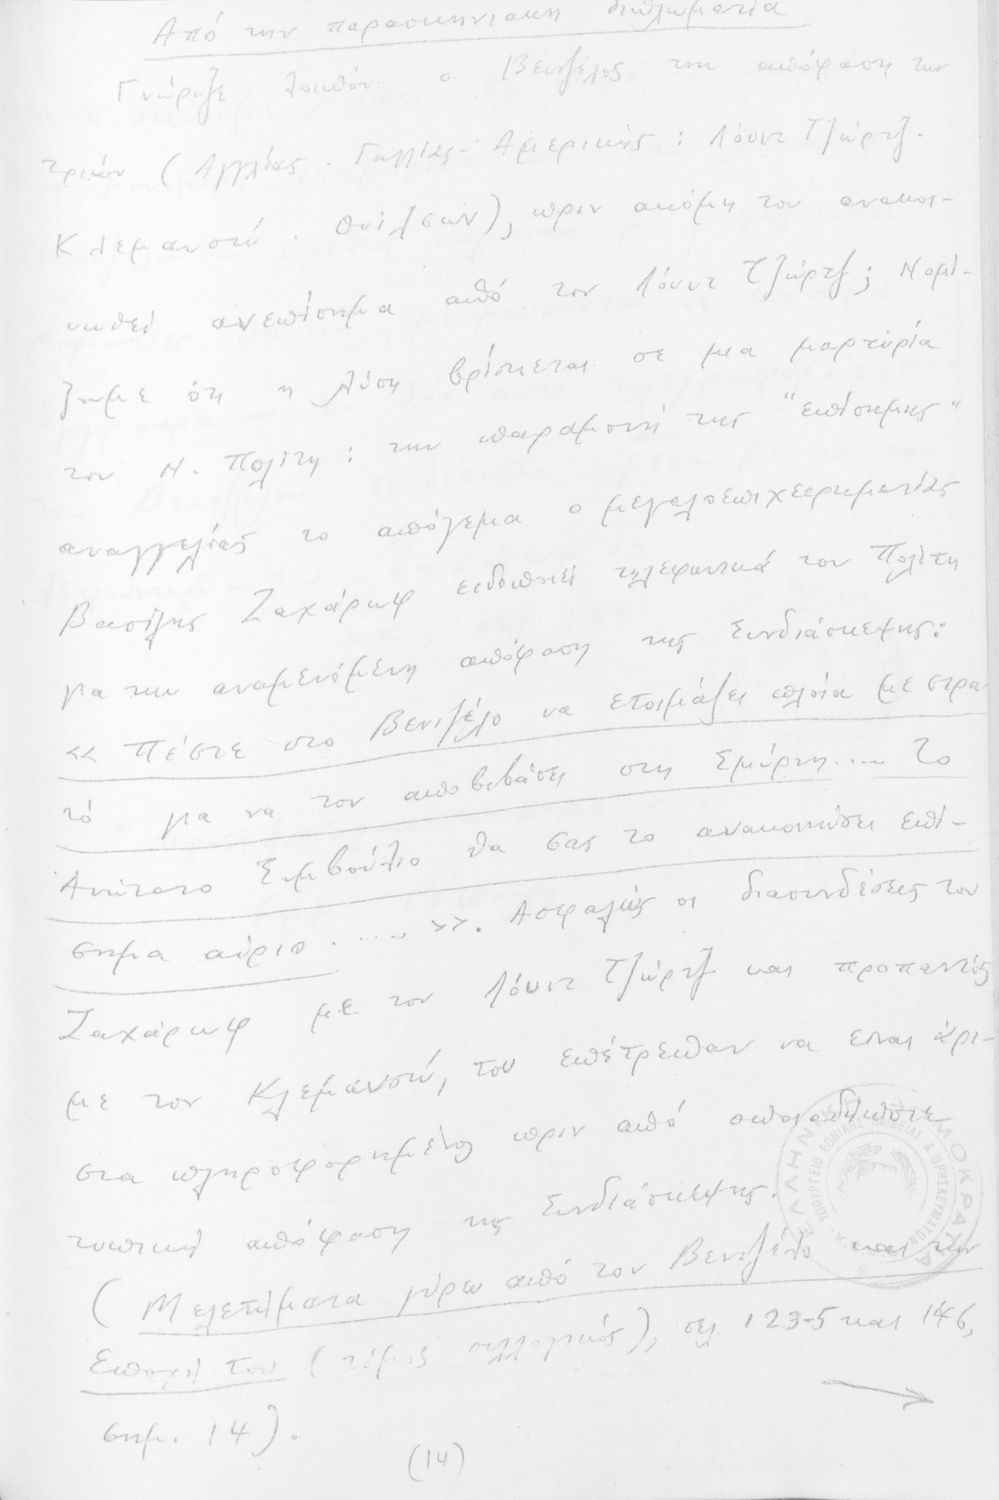 Από την παρασκηνιακη διπλωματία
Γνώριζε λοιπόν ο Βενιζέλος την απόφαση των
τριών (Αγγλίας - Γαλλίας - Αμερικής : Λόυντ Τζώρτζ -
Κλεμανσώ - Ουίλσων), πριν ακόμη του ανακοι-
νωθεί ανεπίσημα από τον Λόυντ Τζώρτζ; Νομί-
ζουμε ότι η λύση βρίσκεται σε μια μαρτυρία
του Ν. Πολίτη : την παραμονή της "επίσημης"
αναγγελίας το απόγεμα ο μεγαλοεπιχειρηματίας
Βασίλης Ζαχάρωφ ειδοποιεί τηλεφωνικά τον Πολίτη
για την αναμενόμενη απόφαση της Συνδιάσκεψης:
<< Πέστε στο Βενιζέλο να ετοιμάζει πλοία με στρα-
τό για να τον αποβιβάσει στη Σμύρνη.... Το
Ανώτατο Συμβούλιο θα σας το ανακοινώσει επί-
σημα αύριο ..... >>. Ασφαλώς οι διασυνδέσεις του
Ζαχάρωφ με τον Λόυντ Τζώρτζ και προπαντός
με τον Κλεμανσώ, του επέτρεπαν να ειναι άρι-
στα πληροφορημένος πριν από οποιαδήποτε
τυπική απόφαση της Συνδιάσκεψης.
( Μελετήματα γύρω από τον Βενιζέλο και την
Εποχή Του (τόμος συλλογικός), σελ. 123-5 και 146,
σημ. 14).
(14)
ΕΛΛΗΝΙΚΗ ΔΗΜΟΚΡΑΤΙΑ
ΥΠΟΥΡΓΕΙΟ ΕΘΝΙΚΗΣ ΠΑΙΔΕΙΑΣ & ΘΡΗΣΚΕΥΜΑΤΩΝ